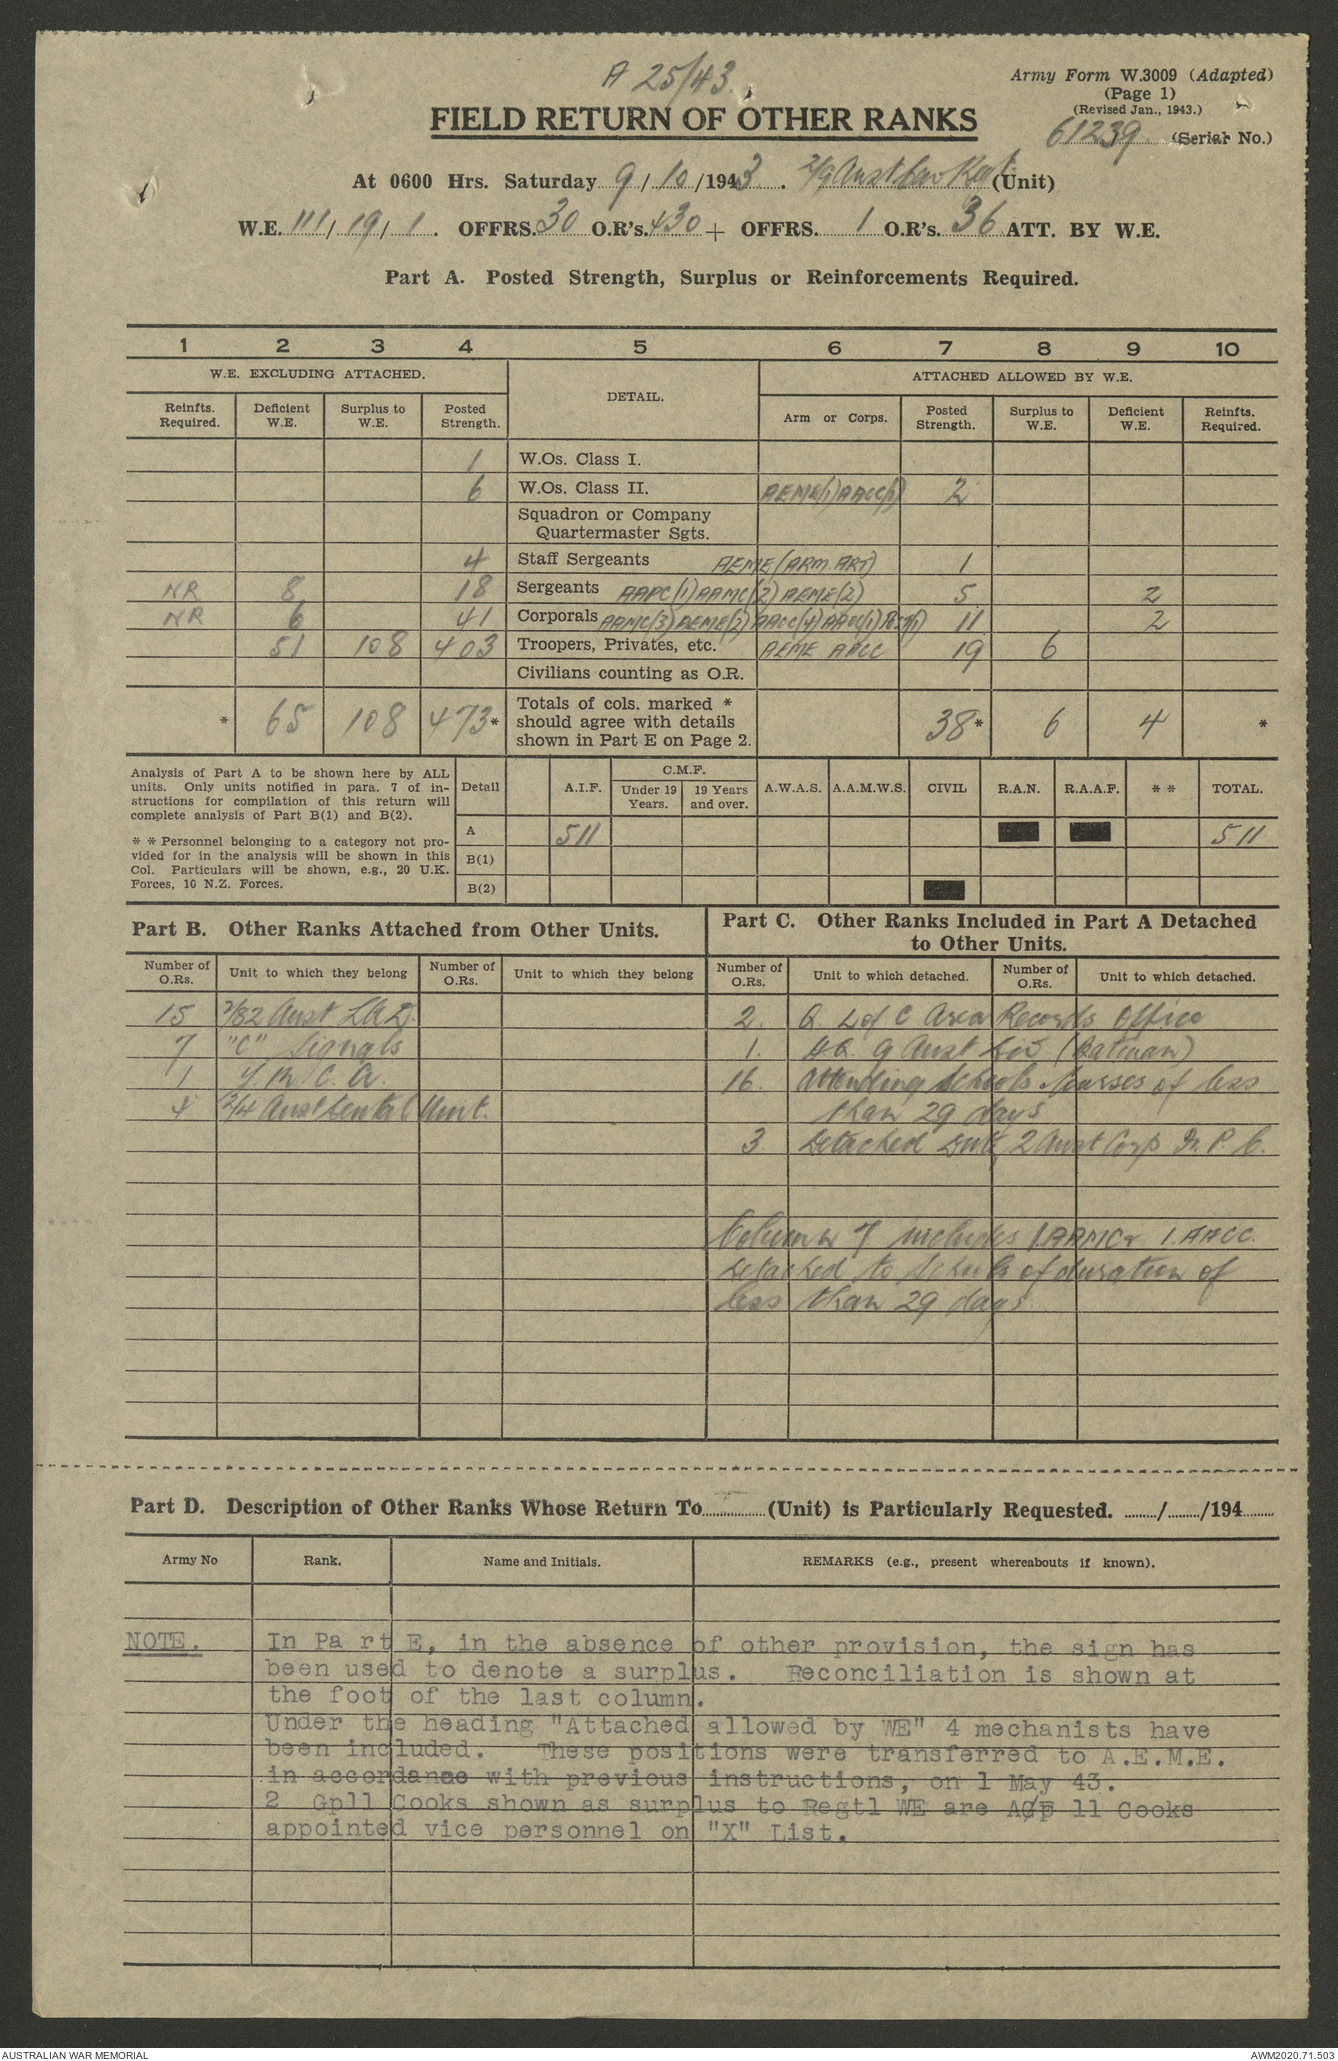 A 25/43.
Army Form W.3009 (Adapted)
(Page 1)
(Revised Jan., 1943.)
FIELD RETURN OF OTHER RANKS
61239 (Serial No.)
At 0600 Hrs. Saturday 9/10/1943. 2/9 Aust Cav Regt (Unit)
W.E. 111/19/1. OFFRS. 30 O.R's. 430 + OFFRS. 1 O.R's. 36 ATT. BY W.E.
Part A. Posted Strength, Surplus or Reinforcements Required.
1 2 3 4 5 6 7 8 9 10
W.E. EXCLUDING ATTACHED. DETAIL. ATTACHED ALLOWED BY W.E.
Reinfts. Required. Deficient W.E. Surplus to W.E. Posted Strength. Arm or Corps. Posted Strength. Surplus to W.E. Deficient W.E. Reinfts. Required.
1 W.Os. Class I.
6 W.Os. Class II. AEME(1) AACC(1) 2
Squadron or Company
Quartermaster Sgts.
4 Staff Sergeants AEME (ARM. ART) 1
NR 8 18 Sergeants AAPC (1) AAMC (2) AEME (2) 5 2
NR 6 41 Corporals AAMC(3) AEME(2) AACC(4) 11 2
51 108 403 Troopers, Privates, etc. AEME AACC 19 6
Civilians counting as O.R.
* 65 108 473* Totals of cols. marked * should agree with details shown in Part E on Page 2. 38* 6 4 *
Analysis of Part A to be shown here by ALL
units. Only units notified in para. 7 of in-
structions for compilation of this return will
complete analysis of Part B(1) and B(2).
* * Personnel belonging to a category not pro-
vided for in the analysis will be shown in this
Col. Particulars will be shown, e.g., 20 U.K.
Forces, 10 N.Z. Forces.
Detail A.I.F. C.M.F. Under 19 Years. 19 Years and over. A.W.A.S. A.A.M.W.S. CIVIL R.A.N. R.A.A.F. * * TOTAL.
A 511 511
B(1)
B(2)
Part B. Other Ranks Attached from Other Units.
Number of O.Rs. Unit to which they belong Number of O.Rs. Unit to which they belong
15 2/82 Aust L.A.D.
7 "C" Signals
1 Y.M.C.A.
4 2/4 Aust Dental Unit.
Part C. Other Ranks Included in Part A Detached
to Other Units.
Number of O.Rs. Unit to which detached. Number of O.Rs. Unit to which detached.
2. Q. L of C Area Records Office
1. HQ. 9 Aust Div (Batman)
16. Attending Schools Courses of less
than 29 days
3 Detached Duty 2 Aust Corp
Column 7 includes 1.AAMC & 1.AACC.
Detached to Schools of duration of
less than 29 days.
Part D. Description of Other Ranks Whose Return To............(Unit) is Particularly Requested. ......../......../194........
Army No Rank. Name and Initials. REMARKS (e.g., present whereabouts if known).
NOTE. In Part E, in the absence of other provision, the sign has
been used to denote a surplus. Reconciliation is shown at
the foot of the last column.
Under the heading "Attached allowed by WE" 4 mechanists have
been included. These positions were transferred to A.E.M.E.
in accordance with previous instructions, on 1 May 43.
2 Gpll Cooks shown as surplus to Regtl WE are 11 Cooks
appointed vice personnel on "X" List.
AUSTRALIAN WAR MEMORIAL
AWM2020.71.503